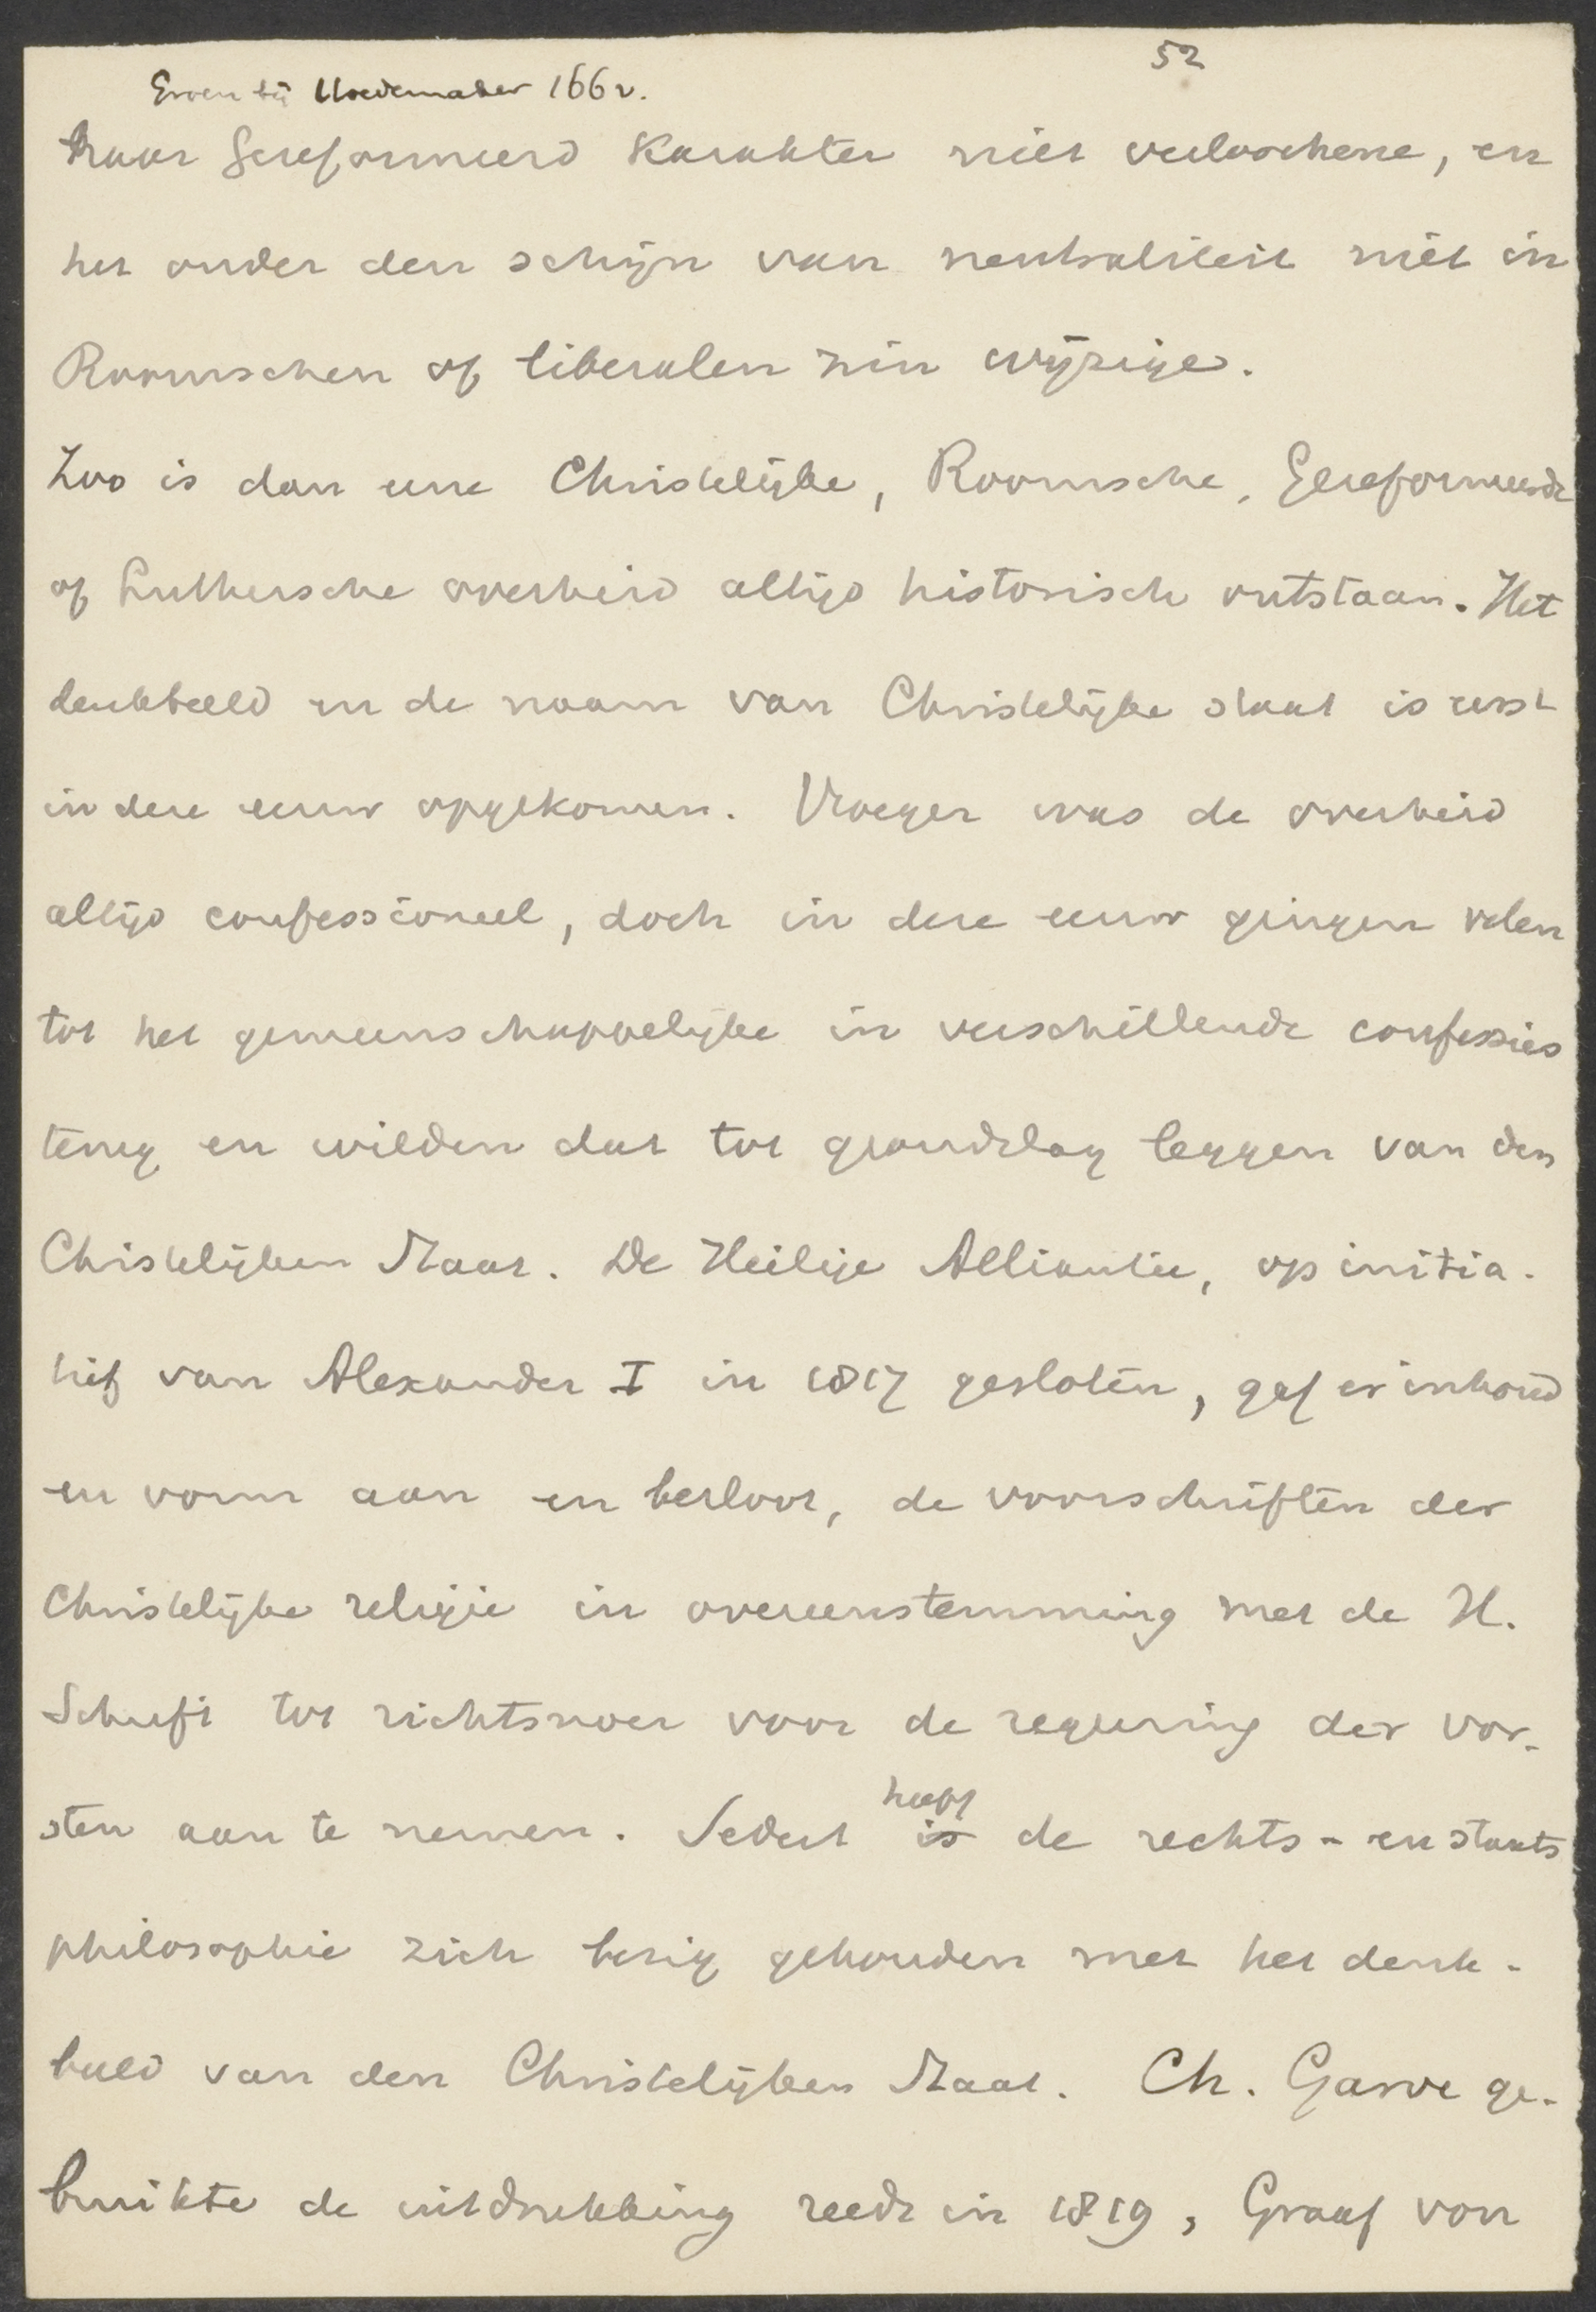 52
Even bij Hoedemaker 166v.
haar Gereformeerd karakter niet verloochene, en
het onder den schijn van neutraliteit niet in
Roomschen of liberalen zin wijzige.
Zoo is dan eene Christelijke, Roomsche, Gereformeerde
of Luthersche overheid altijd historisch ontstaan. Het
denkbeeld en de naam van Christelijke staat is eerst
in deze eeuw opgekomen. Vroeger was de overheid
altijd confessioneel, doch in deze eeuw gingen velen
tot het gemeenschappelijke in verschillende confessies
terug en wilden dat tot grondslag leggen van den
Christelijken Staat. De Heilige Alliantie, op initia-
tief van Alexander I in 1817 gesloten, gaf er inhoud
en vorm aan en besloot, de voorschriften der
Christelijke religie in overeenstemming met de H.
Schrift tot richtsnoer voor de regeering der vor-
sten aan te nemen. Sedert is heeft de rechts- en staats
philosophie zich bezig gehouden met het denk-
beeld van den Christelijken Staat. Ch. Garve ge-
bruikte de uitdrukking reeds in 1819, Graaf von